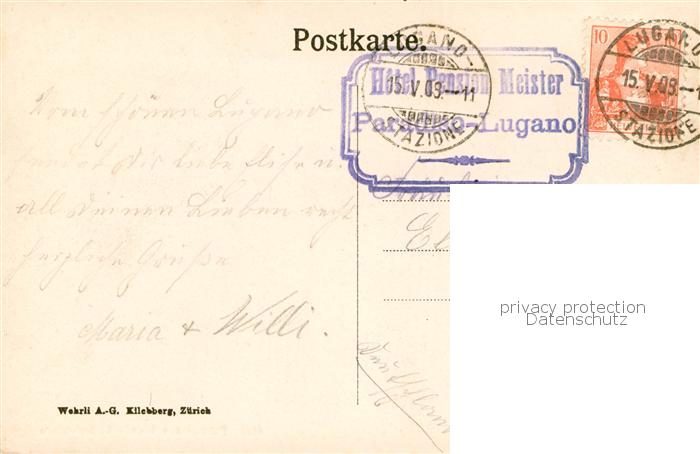 Postkarte.
LUGANO
15.V.09.-11
STAZIONE
Hôtel Pension Meister
Paradiso-Lugano
10
LUGANO
15.V.09.-1
STAZIONE
Vom schönen Lugano
sendet Dir liebe Elise u.
all Deinen Lieben recht
herzliche Grüße
Maria & Willi.
El
Deutschland
privacy protection
Datenschutz
Wehrli A.-G. Kilchberg, Zürich